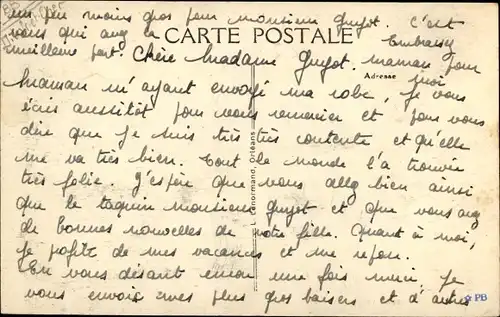 un peu moins gros pour monsieur Guyot. C'est
vous qui avez la
meilleure part.
Embrassez
maman pour
moi
CARTE POSTALE
Adresse
Chère Madame Guyot.
Maman m'ayant envoyé ma robe, je vous
écris aussitôt pour vous remercier et pour vous
dire que je suis très très contente et qu'elle
me va très bien. Tout le monde l'a trouvée
très jolie. J'espère que vous allez bien ainsi
que le taquin monsieur Guyot et que vous avez
de bonnes nouvelles de votre fille. Quant à moi,
je profite de mes vacances et me repose.
En vous disant encore une fois merci, je
vous envoie mes plus gros baisers et d'autres
Lenormand, Orléans
PB